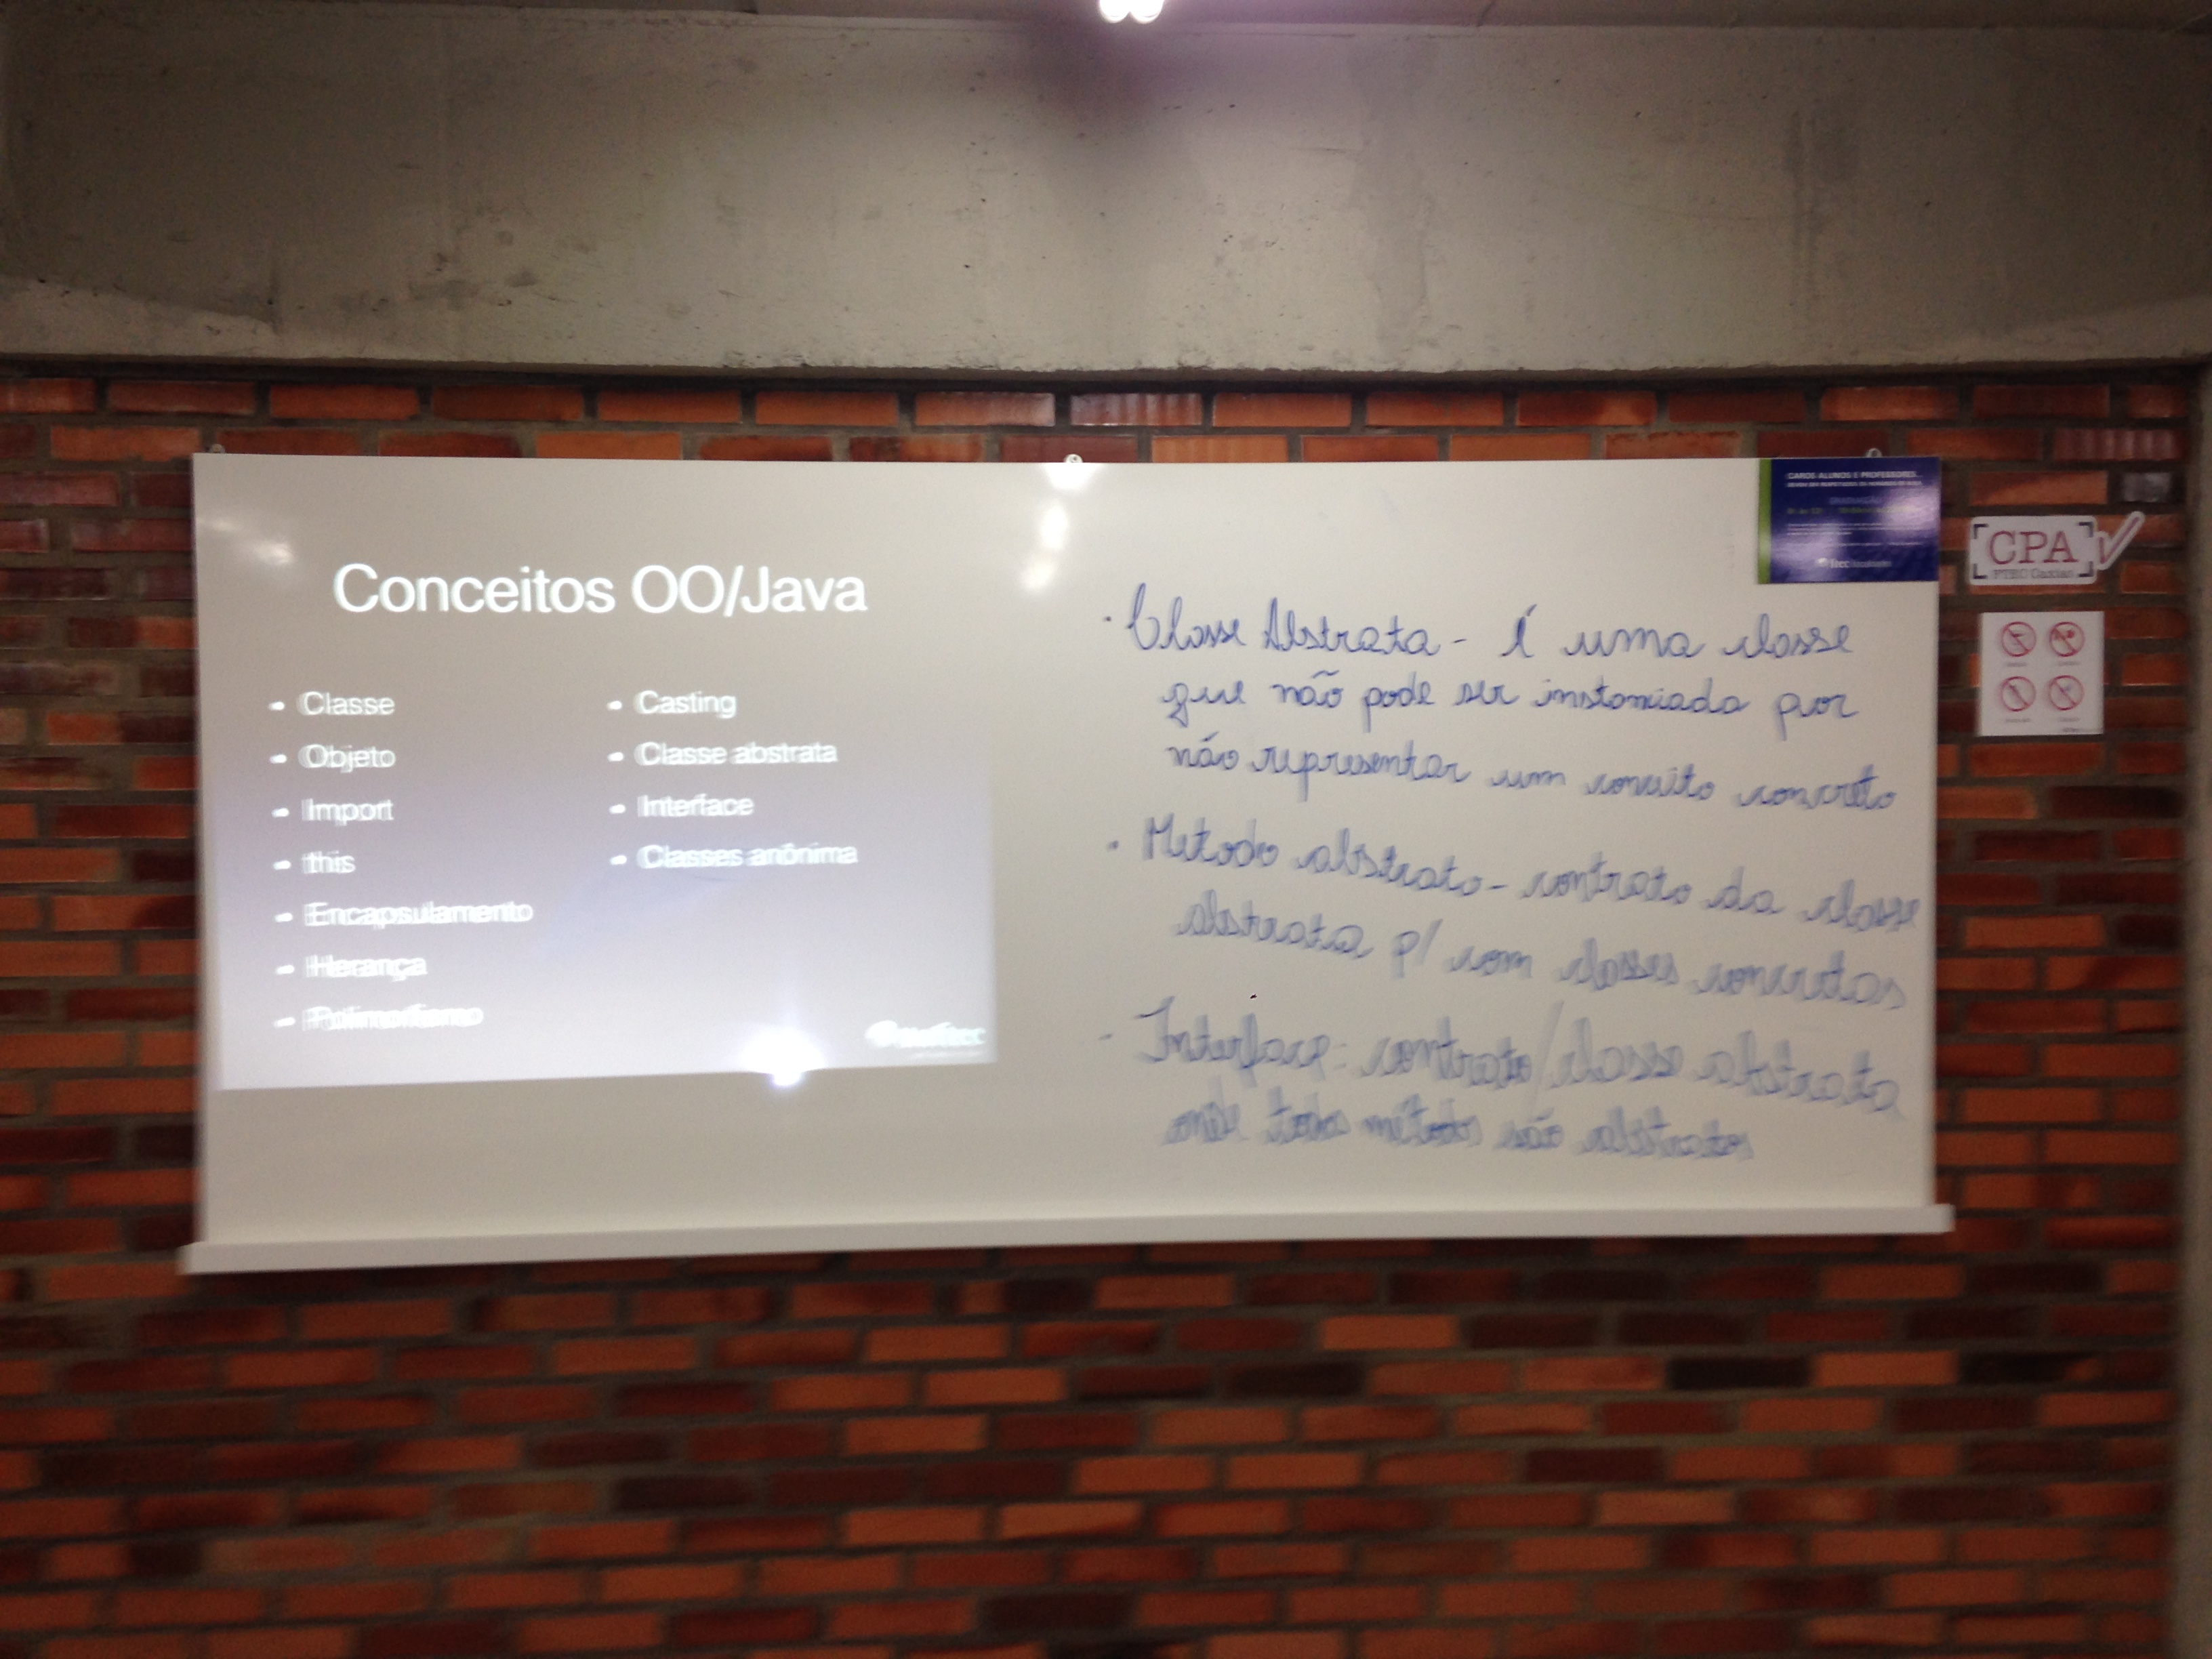 Conceitos OO/Java
- Classe
- Objeto
- Import
- this
- Encapsulamento
- Herança
- Polimorfismo
- Casting
- Classe abstrata
- Interface
- Classes anônima
• Classe Abstrata - É uma classe
que não pode ser instanciada por
não representar um conceito concreto
• Metodo abstrato - contrato da classe
abstrata p/ com classes concretas
- Interface: contrato/classe abstrata
onde todos métodos são abstratos
CAROS ALUNOS E PROFESSORES,
GRADUAÇÃO
CPA
FTEC Caxias